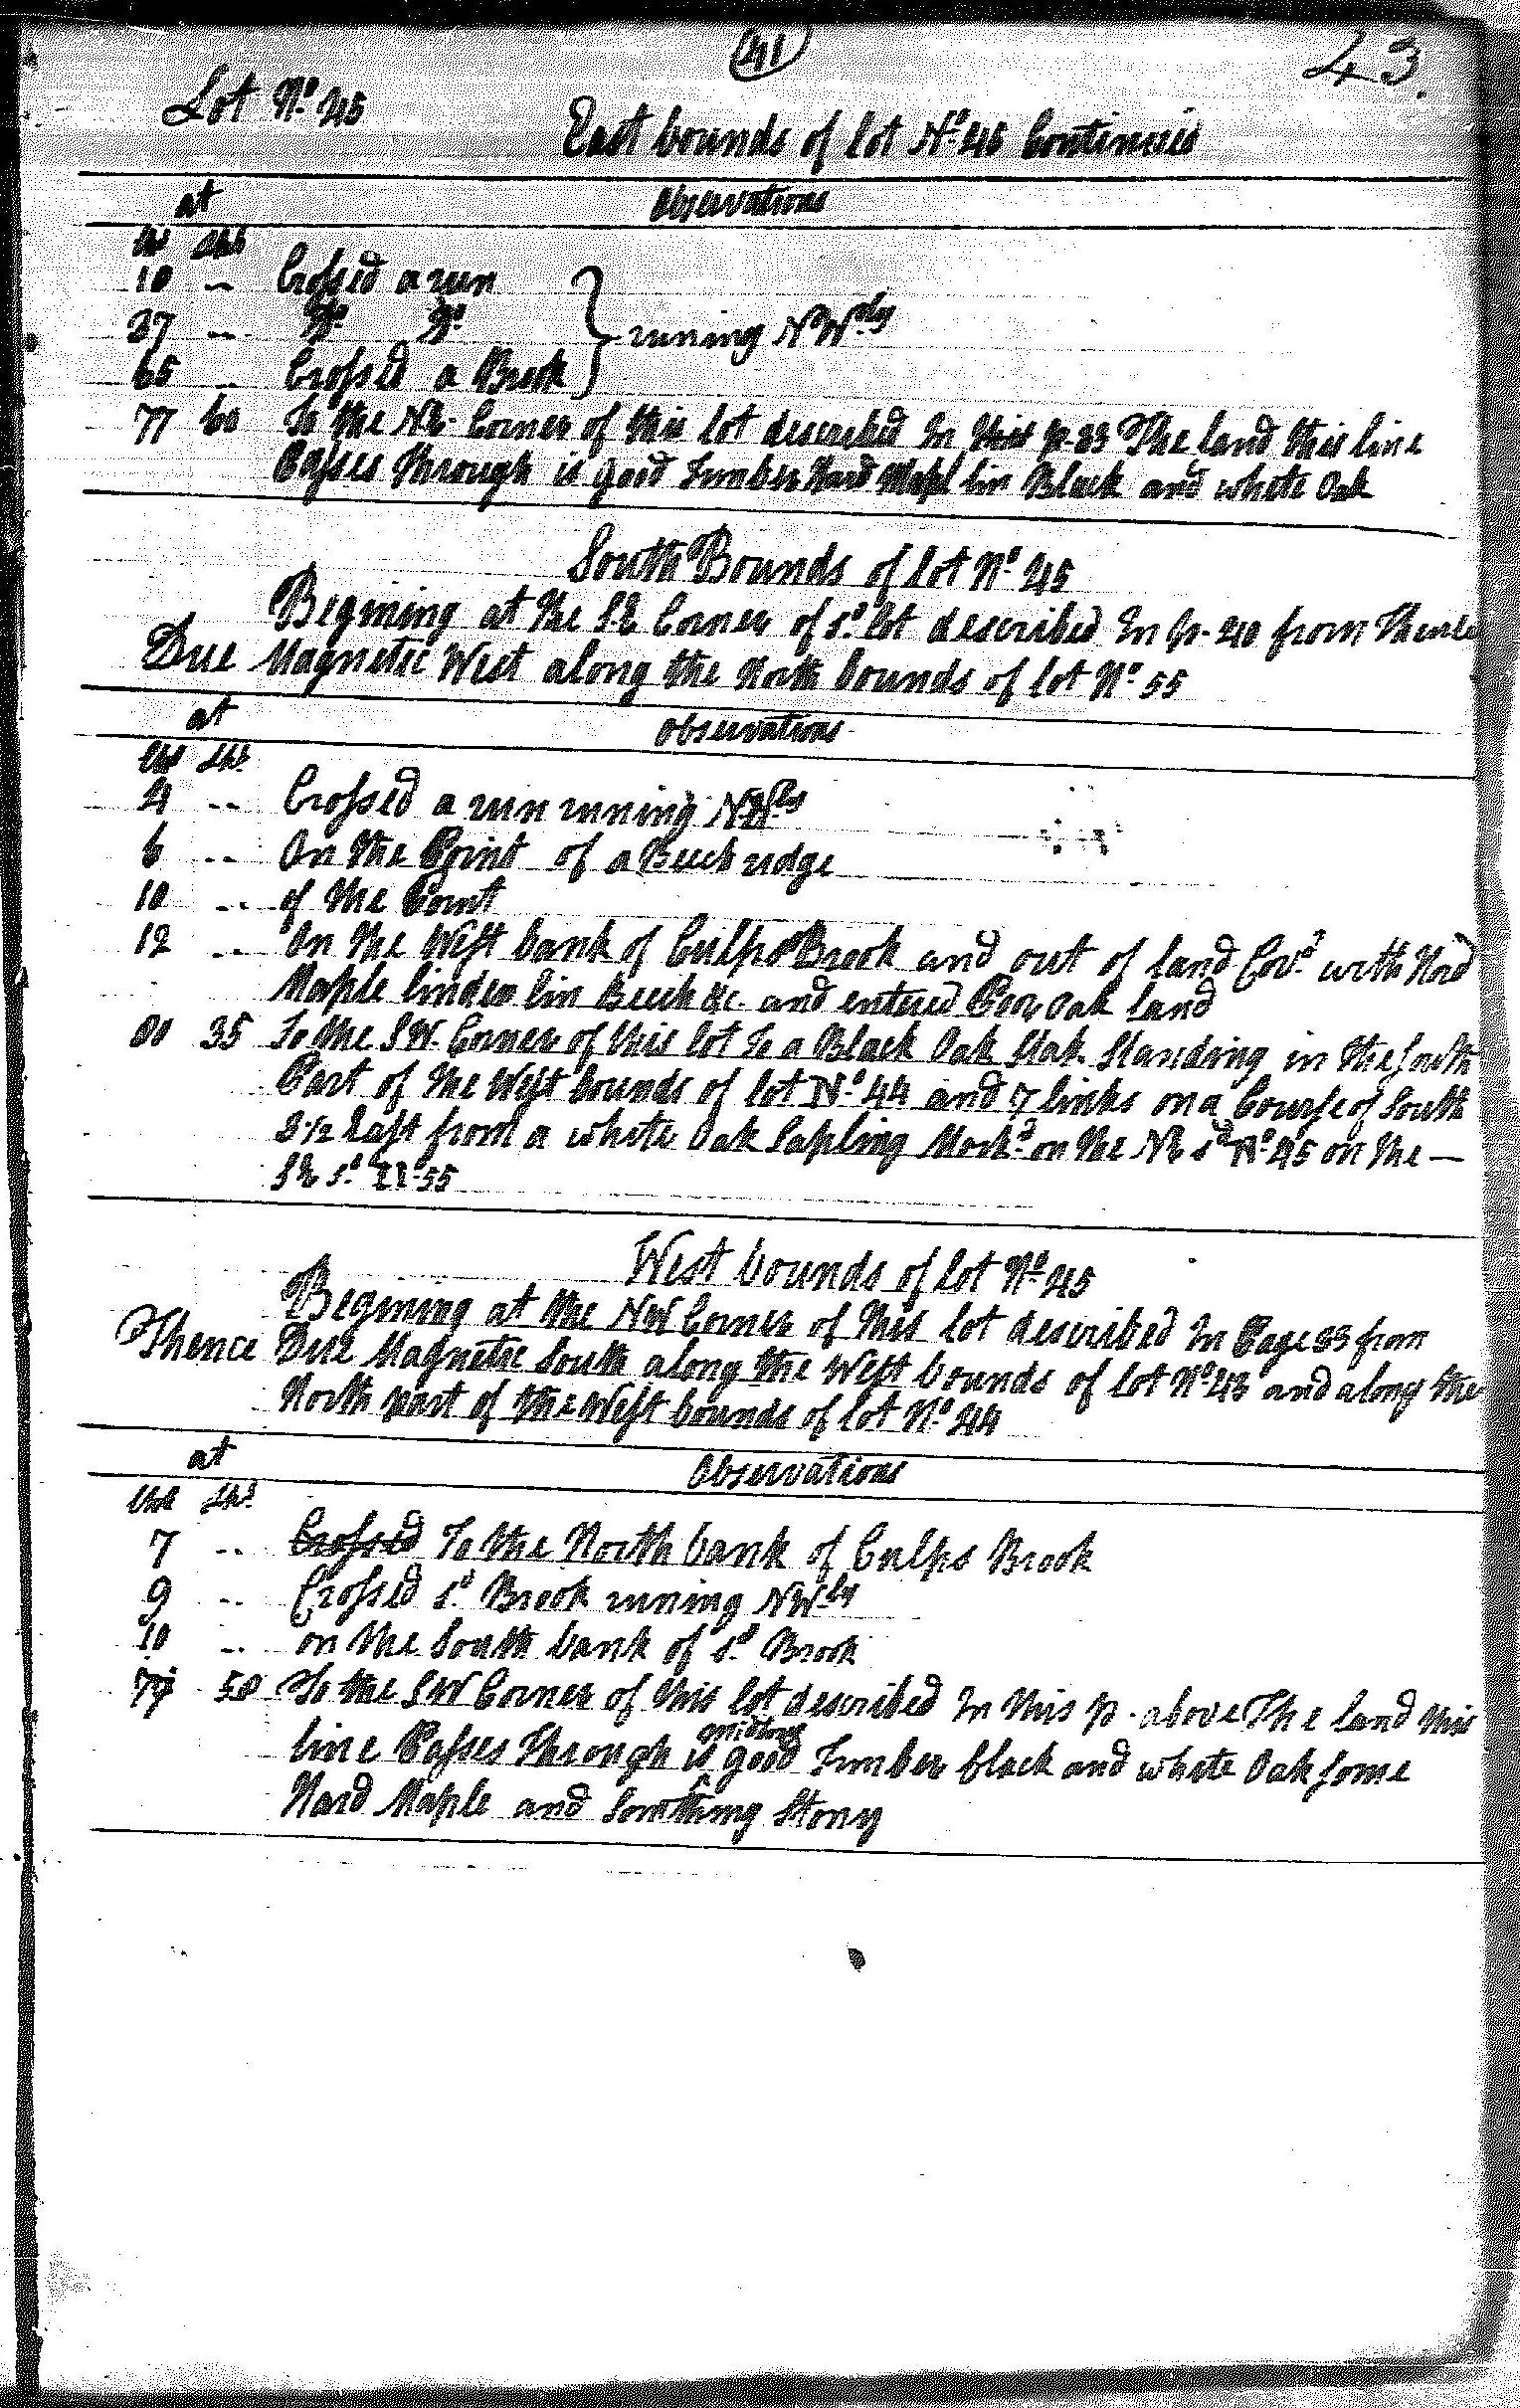 41
43.
Lot No. 45
East bounds of lot No. 45 Continued
at
Observations
Chs Lks
10 .. Crossed a run
37 .. Do. Do.
} runing NWely
65 .. Crossed a Brook
77 60 To the NE Corner of this lot described In this p. 33 The land this line
Passes through is good Timber Hard Mapl lin Black and white Oak
South Bounds of lot No. 45
Begining at the SE Corner of sd. lot described In p. 40 from Thence
Due Magnetic West along the North bounds of lot No. 55
at
Observations
Chs Lks.
4 .. Crossed a run runing NWly
6 .. On the Point of a Beech ridge
10 .. of the Point
12 .. On the West bank of Culps Brook and out of land Covd. with Hard
Maple linden lin Beech &c. and entered Poor Oak land
80 35 To the SW. Corner of this lot To a Black Oak Stak Standing in the South
Part of the West bounds of lot No. 44 and 7 links on a Course of South
3 1/2 East from a white Oak Sapling Markd. on the NE sd. No. 45 on the —
SE sd. 55
West bounds of lot No. 45
Begining at the NW Corner of this lot described In Page 33 from
Thence Due Magnetic South along the West bounds of lot No. 43 and along the
North part of the West bounds of lot No. 44
at
Observations
Chs Lks.
7 .. Crossed To the North bank of Culps Brook
9 .. Crossed sd. Brook runing NWly
10 .. on the South bank of sd. Brook
77 50 To the SW Corner of this lot described In this p. above The land this
midling
line Passes Through is good Timber black and white Oak some
Hard Maple and Somthing Stony